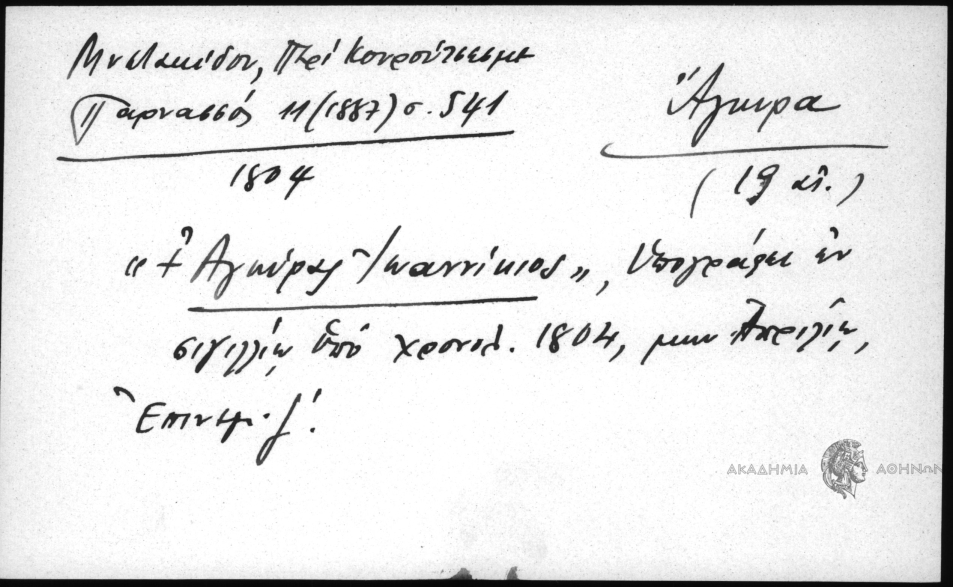 Μυστακίδου, Περὶ Κουρούτσεσμε
Παρνασσός 11 (1887) σ. 541
1804
Ἄγκυρα
(19 αἰ.)
« † Ἀγκύρας Ἰωαννίκιος », ὑπογράφει ἐν
σιγιλλίῳ ὑπό χρονολ. 1804, μην Ἀπριλίῳ,
Ἐπινεμ. ζ΄.
ΑΚΑΔΗΜΙΑ ΑΘΗΝΩΝ